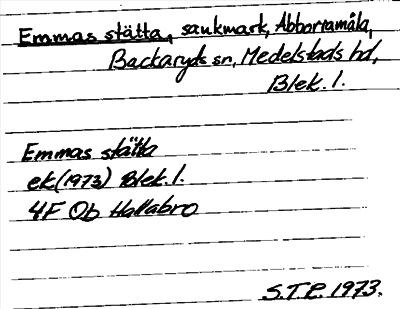 Emmas stätta, sankmark, Abborramåla,
Backaryds sn, Medelstads hd,
Blek. l.
Emmas stätta
ek (1973) Blek. l.
4F Ob Hallabro
S.T.P. 1973.